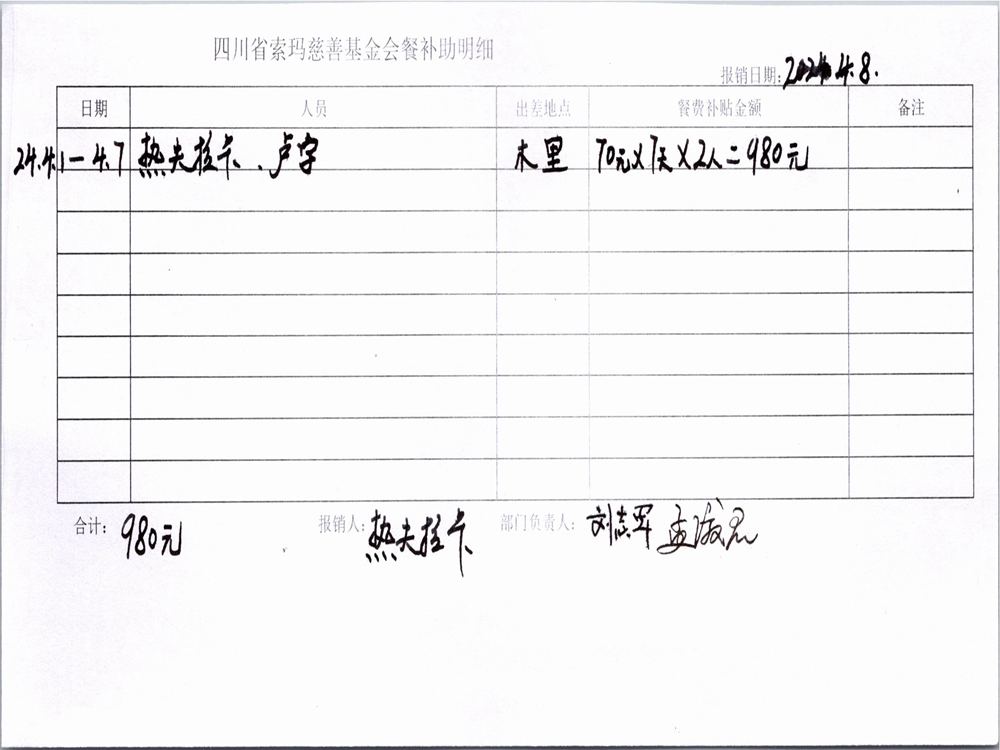 四川省索玛慈善基金会餐补助明细
报销日期: 2024.4.8.
日期 人员 出差地点 餐费补贴金额 备注
24.4.1-4.7 热夫拉卡、卢字 木里 70元×7天×2人=980元
合计: 980元 报销人: 热夫拉卡 部门负责人: 刘志军